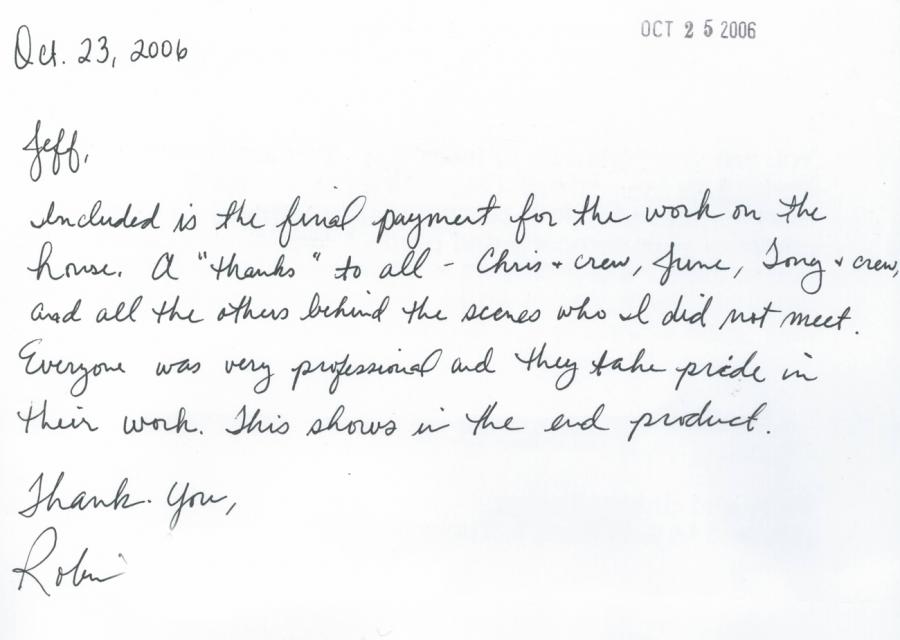 OCT 25 2006
Oct. 23, 2006
Jeff,
Included is the final payment for the work on the
house. A "thanks" to all - Chris + crew, June, Tony + crew,
and all the others behind the scenes who I did not meet.
Everyone was very professional and they take pride in
their work. This shows in the end product.
Thank You,
Robin